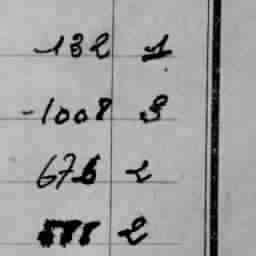 -132 1
-1008 3
676 2
2